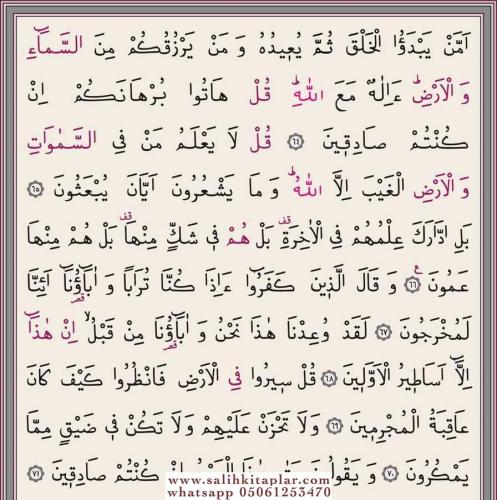 اَمَّنْ يَبْدَؤُا الْخَلْقَ ثُمَّ يُعٖيدُهُ وَ مَنْ يَرْزُقُكُمْ مِنَ السَّمَٓاءِ
وَ الْاَرْضِؕ ءَاِلٰهٌ مَعَ اللّٰهِؕ قُلْ هَاتُوا بُرْهَانَكُمْ اِنْ
كُنْتُمْ صَادِقٖينَ ﴿٦٤﴾ قُلْ لَا يَعْلَمُ مَنْ فِى السَّمٰوَاتِ
وَ الْاَرْضِ الْغَيْبَ اِلَّا اللّٰهُؕ وَ مَا يَشْعُرُونَ اَيَّانَ يُبْعَثُونَ ﴿٦٥﴾
بَلِ ادَّارَكَ عِلْمُهُمْ فِى الْاٰخِرَةِࣞ بَلْ هُمْ فٖى شَكٍّ مِنْهَاࣞ بَلْ هُمْ مِنْهَا
عَمُونَ ﴿٦٦﴾ وَ قَالَ الَّذٖينَ كَفَرُٓوا ءَاِذَا كُنَّا تُرَابًا وَ اٰبَٓاؤُنَٓا اَئِنَّا
لَمُخْرَجُونَ ﴿٦٧﴾ لَقَدْ وُعِدْنَا هٰذَا نَحْنُ وَ اٰبَٓاؤُنَا مِنْ قَبْلُۙ اِنْ هٰذَٓا
اِلَّٓا اَسَاطٖيرُ الْاَوَّلٖينَ ﴿٦٨﴾ قُلْ سٖيرُوا فِى الْاَرْضِ فَانْظُرُوا كَيْفَ كَانَ
عَاقِبَةُ الْمُجْرِمٖينَ ﴿٦٩﴾ وَلَا تَحْزَنْ عَلَيْهِمْ وَلَا تَكُنْ فٖى ضَيْقٍ مِمَّا
يَمْكُرُونَ ﴿٧٠﴾ وَ يَقُولُونَ اِنْ كُنْتُمْ صَادِقٖينَ ﴿٧١﴾
www.salihkitaplar.com
whatsapp 05061253470